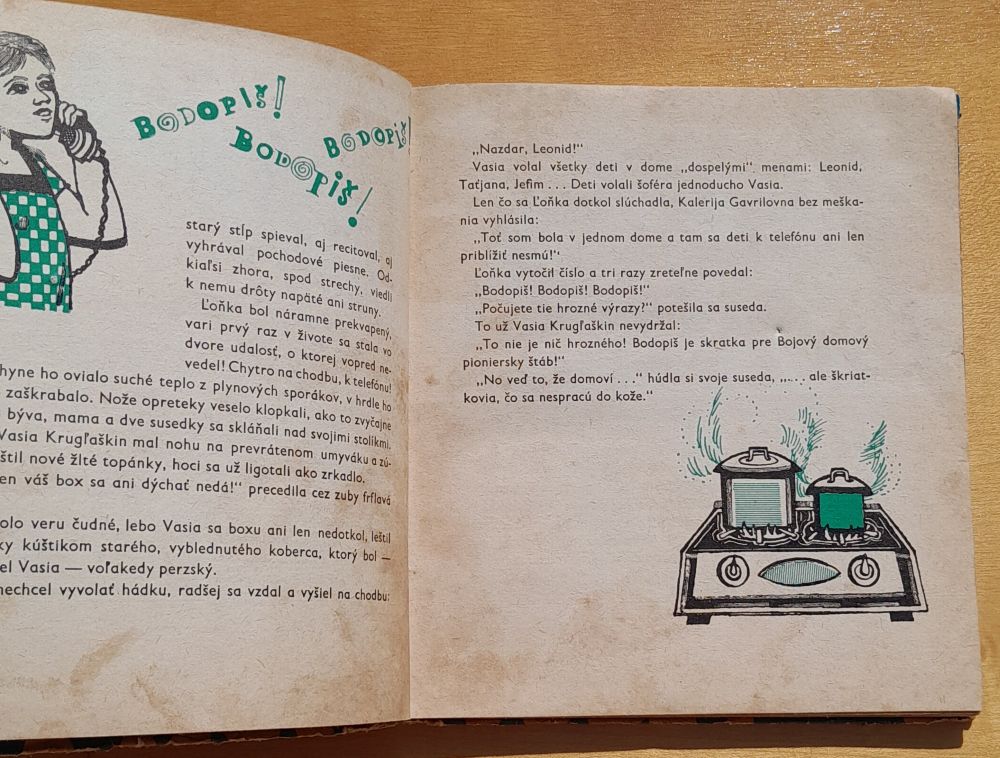 BODOPIŠ!
BODOPIŠ!
BODOPIŠ!
starý stĺp spieval, aj recitoval, aj
vyhrával pochodové piesne. Od-
kiaľsi zhora, spod strechy, viedli
k nemu drôty napäté ani struny.
Ľoňka bol náramne prekvapený,
vari prvý raz v živote sa stala vo
dvore udalosť, o ktorej vopred ne-
vedel! Chytro na chodbu, k telefónu!
hyne ho ovialo suché teplo z plynových sporákov, v hrdle ho
zaškrabalo. Nože opreteky veselo klopkali, ako to zvyčajne
býva, mama a dve susedky sa skláňali nad svojimi stolíkmi.
Vasia Krugľaškin mal nohu na prevrátenom umyváku a zú-
štil nové žlté topánky, hoci sa už ligotali ako zrkadlo.
en váš box sa ani dýchať nedá!“ precedila cez zuby frflavá
olo veru čudné, lebo Vasia sa boxu ani len nedotkol, leštil
ky kúštikom starého, vyblednutého koberca, ktorý bol —
el Vasia — voľakedy perzský.
nechcel vyvolať hádku, radšej sa vzdal a vyšiel na chodbu:
„Nazdar, Leonid!“
Vasia volal všetky deti v dome „dospelými“ menami: Leonid,
Taťjana, Jefim . . . Deti volali šoféra jednoducho Vasia.
Len čo sa Ľoňka dotkol slúchadla, Kalerija Gavrilovna bez meška-
nia vyhlásila:
„Toť som bola v jednom dome a tam sa deti k telefónu ani len
priblížiť nesmú!“
Ľoňka vytočil číslo a tri razy zreteľne povedal:
„Bodopiš! Bodopiš! Bodopiš!“
„Počujete tie hrozné výrazy?“ potešila sa suseda.
To už Vasia Krugľaškin nevydržal:
„To nie je nič hrozného! Bodopiš je skratka pre Bojový domový
pioniersky štáb!“
„No veď to, že domoví . . .“ húdla si svoje suseda, „. . . ale škriat-
kovia, čo sa nespracú do kože.“